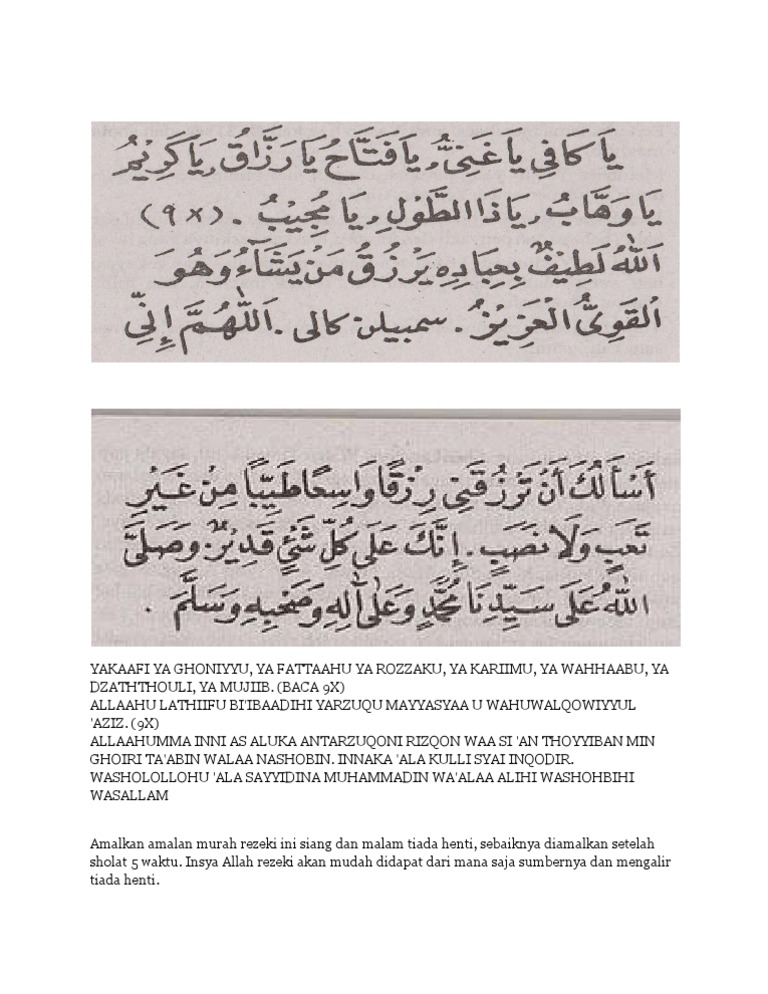 يَا كَافِي يَا غَنِيُّ، يَا فَتَّاحُ يَا رَزَّاقُ، يَا كَرِيْمُ
يَا وَهَّابُ، يَا ذَا الطَّوْلِ، يَا مُجِيْبُ . (٩ x)
اَللّٰهُ لَطِيْفٌ بِعِبَادِهِ يَرْزُقُ مَنْ يَشَآءُ وَهُوَ
الْقَوِيُّ الْعَزِيْزُ . سمبيلن كالى . اَللّٰهُمَّ إِنِّي
أَسْأَلُكَ أَنْ تَرْزُقَنِى رِزْقًا وَاسِعًا طَيِّبًا مِنْ غَيْرِ
تَعَبٍ وَلَا نَصَبٍ . إِنَّكَ عَلَى كُلِّ شَىْءٍ قَدِيْرٌ . وَصَلَّى
اللّٰهُ عَلَى سَيِّدِنَا مُحَمَّدٍ وَعَلٰى آلِهِ وَصَحْبِهِ وَسَلَّمَ .
YAKAAFI YA GHONIYYU, YA FATTAAHU YA ROZZAKU, YA KARIIMU, YA WAHHAABU, YA
DZATHTHOULI, YA MUJIIB. (BACA 9X)
ALLAAHU LATHIIFU BI'IBAADIHI YARZUQU MAYYASYAA U WAHUWALQOWIYYUL
'AZIZ. (9X)
ALLAAHUMMA INNI AS ALUKA ANTARZUQONI RIZQON WAA SI 'AN THOYYIBAN MIN
GHOIRI TA'ABIN WALAA NASHOBIN. INNAKA 'ALA KULLI SYAI INQODIR.
WASHOLOLLOHU 'ALA SAYYIDINA MUHAMMADIN WA'ALAA ALIHI WASHOHBIHI
WASALLAM
Amalkan amalan murah rezeki ini siang dan malam tiada henti, sebaiknya diamalkan setelah
sholat 5 waktu. Insya Allah rezeki akan mudah didapat dari mana saja sumbernya dan mengalir
tiada henti.